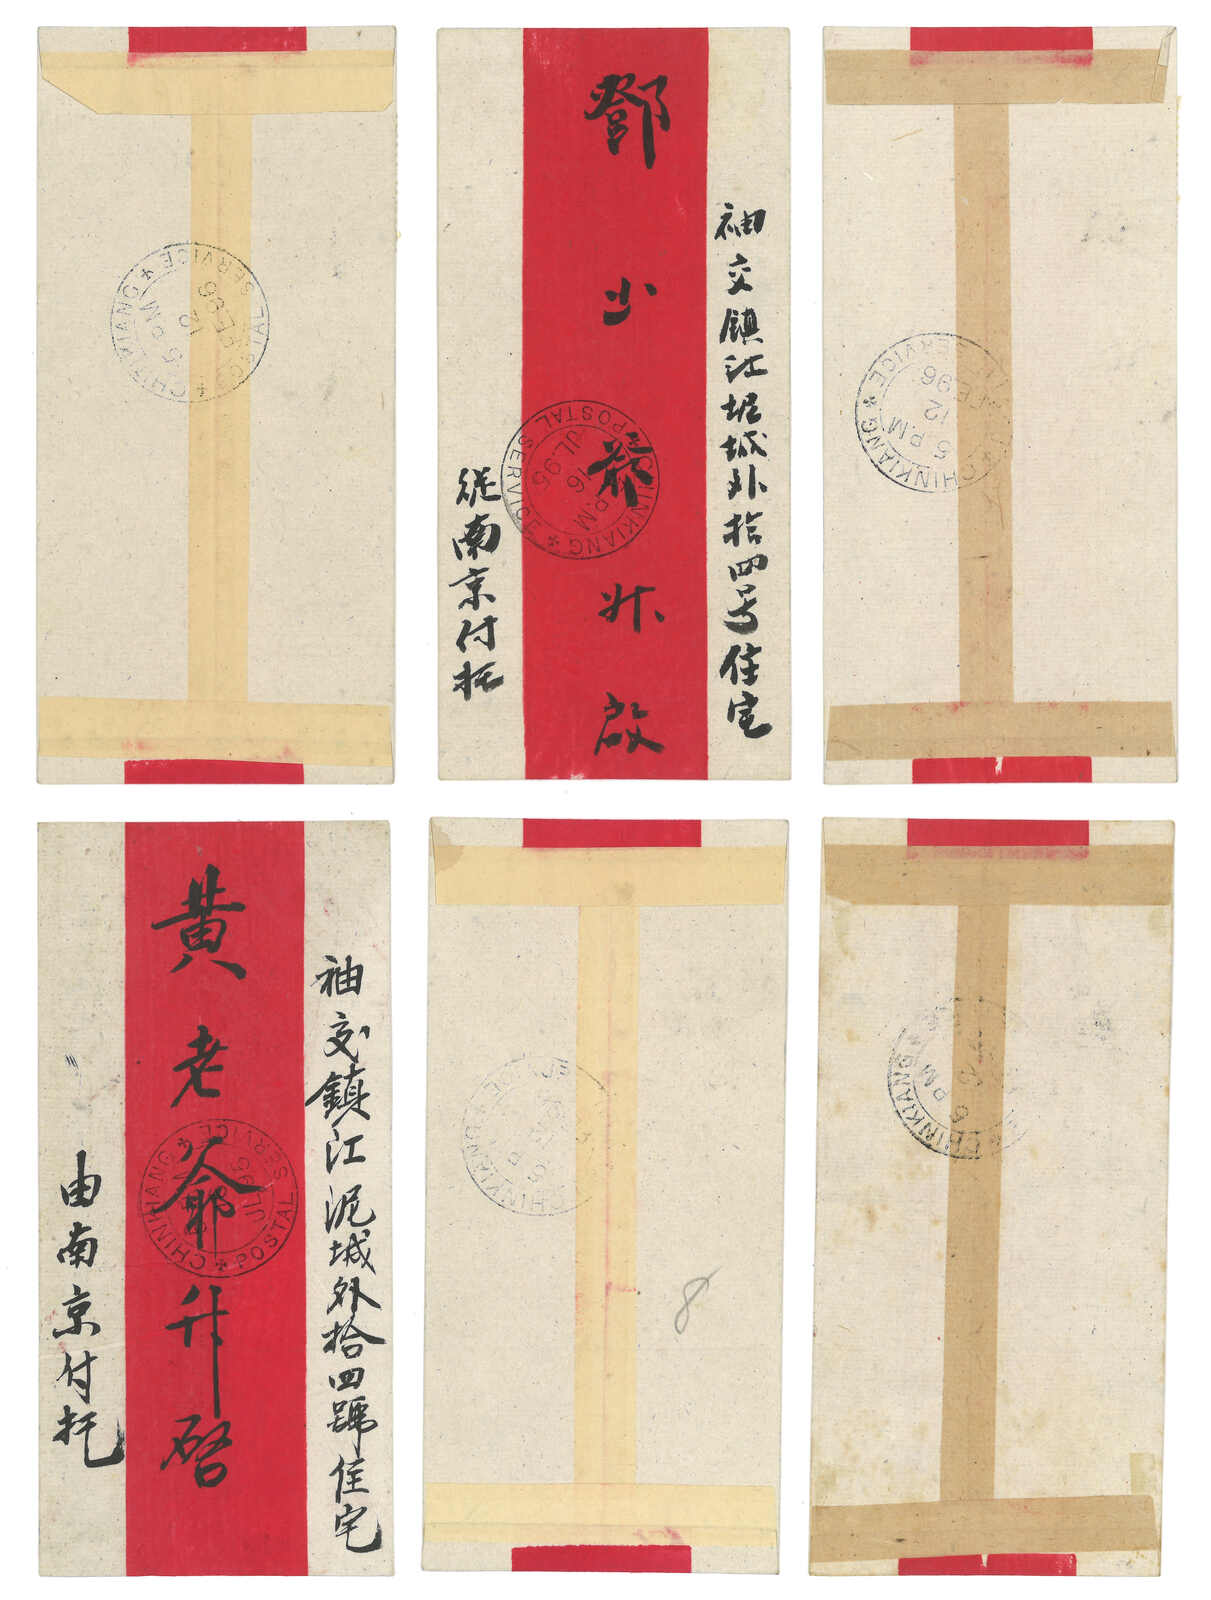 CHINKIANG POSTAL SERVICE
5 P.M
13
FE.96
袖交鎮江坭城外拾四号住宅
鄧少爺升啟
從南京付托
CHINKIANG POSTAL SERVICE
P.M
16
JL.95
CHINKIANG SERVICE
5 P.M
12
FE.96
袖交鎮江泥城外拾四號住宅
黄老爺升啓
由南京付托
CHINKIANG POSTAL SERVICE
JL.95
CHINKIANG
8
CHINKIANG
P.M